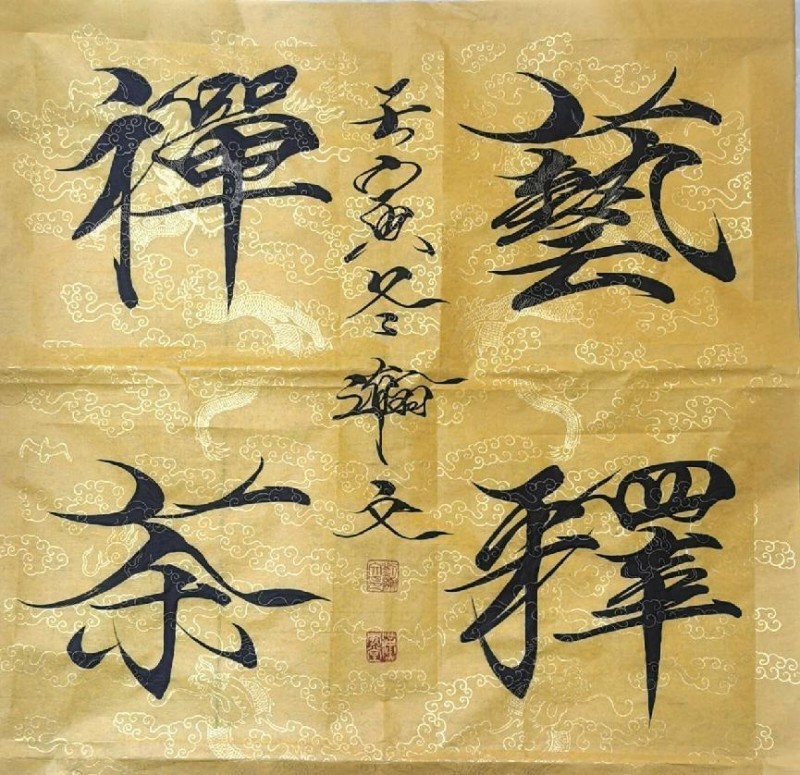 藝釋
禪茶
壬寅冬瀚文